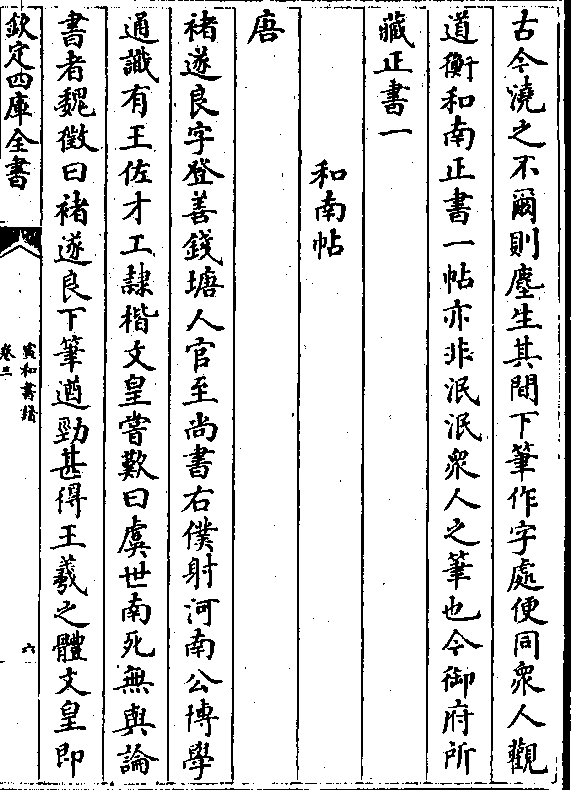 古今澆之不爾則塵生其間下筆作字處便同衆人觀
道衡和南正書一帖亦非泯泯衆人之筆也今御府所
藏正書一
和南帖
唐
褚遂良字登善錢塘人官至尚書右僕射河南公博學
通識有王佐才工隷楷文皇嘗歎曰虞世南死無與論
書者魏徵曰褚遂良下筆遒勁甚得王羲之體文皇即
欽定四庫全書
宣和書譜
卷三
六